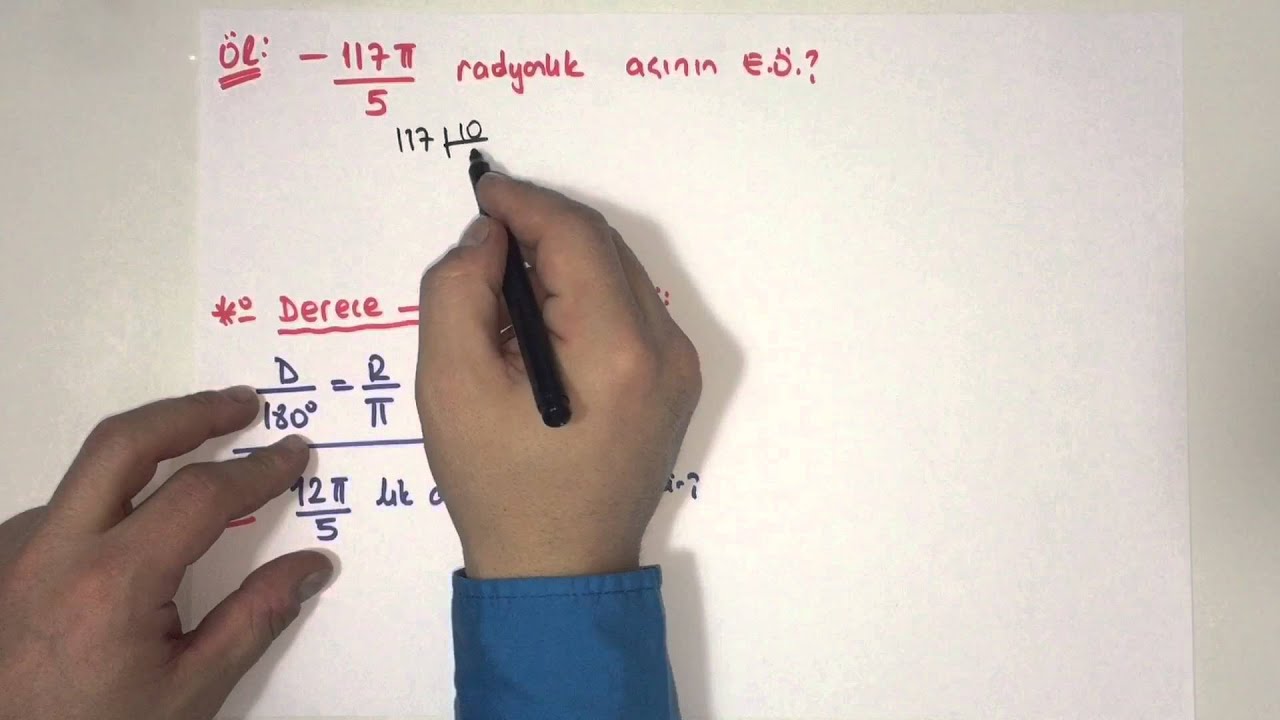 Öl: - 117π/5 radyanlık açının E.Ö.?
117 | 10
*: Derece —
D/180° = R/π
12π/5 lik